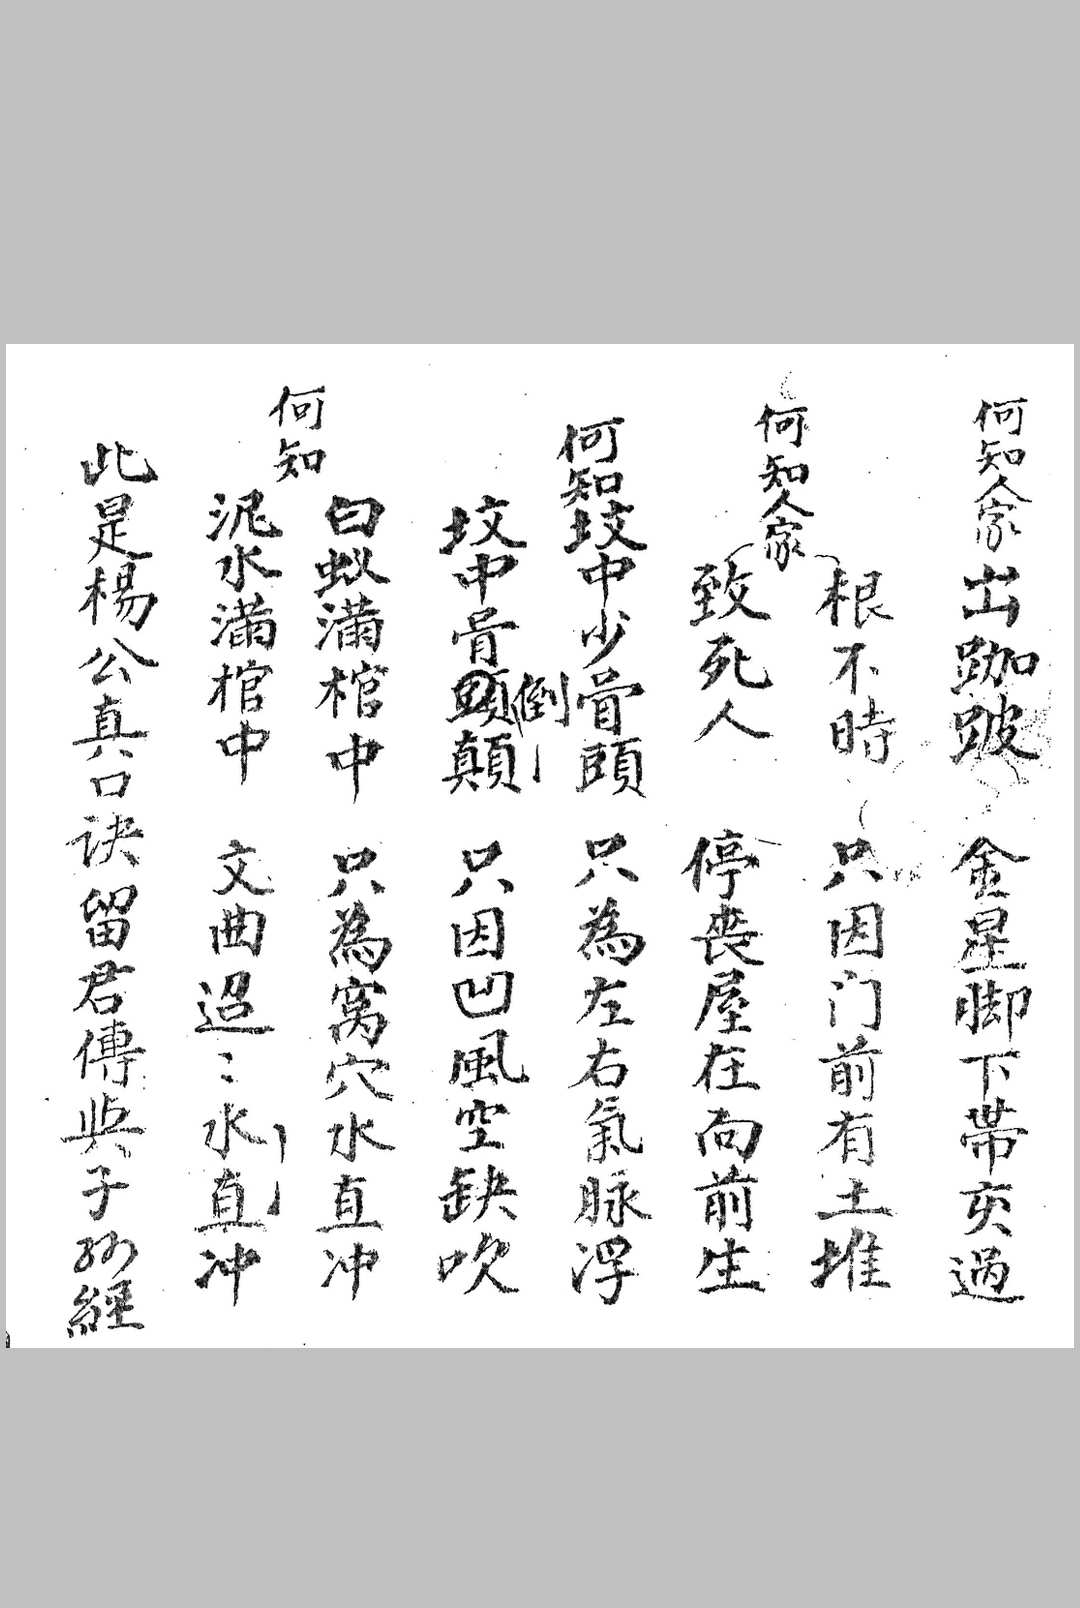 何知人家出跏跛 金星脚下帶亥過
何知人家
根不時 只因门前有土堆
致死人 停喪屋在向前生
何知坟中少骨頭 只為左右氣脉浮
坟中骨顛倒 只因凹風空缺吹
何知
白蚁滿棺中 只為窝穴水直冲
泥水滿棺中 文曲迢〻水直冲
此是楊公真口诀留君傳與子孙經